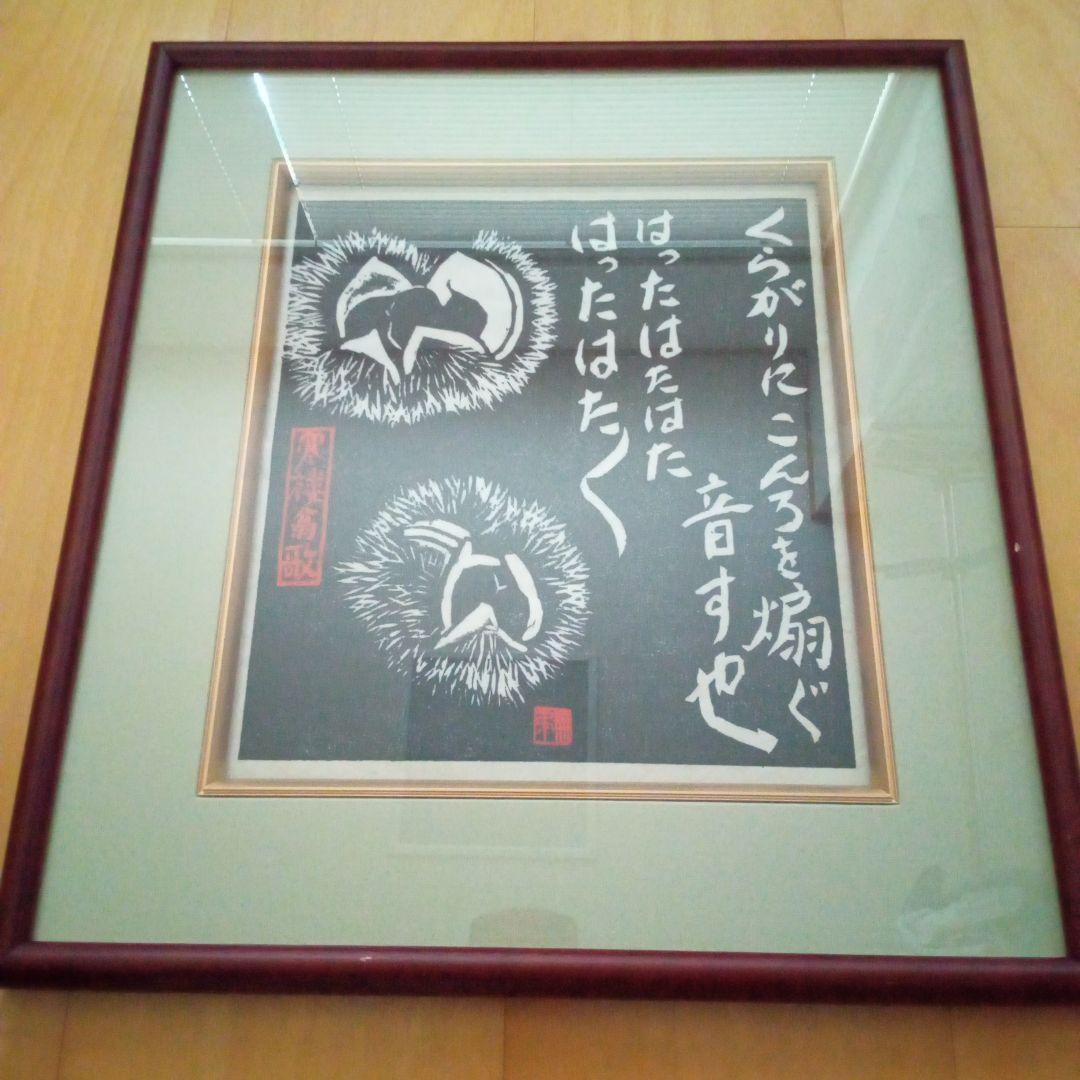 くらがりにこんろを煽ぐ
音す也
はったはたはた
はったはた〱